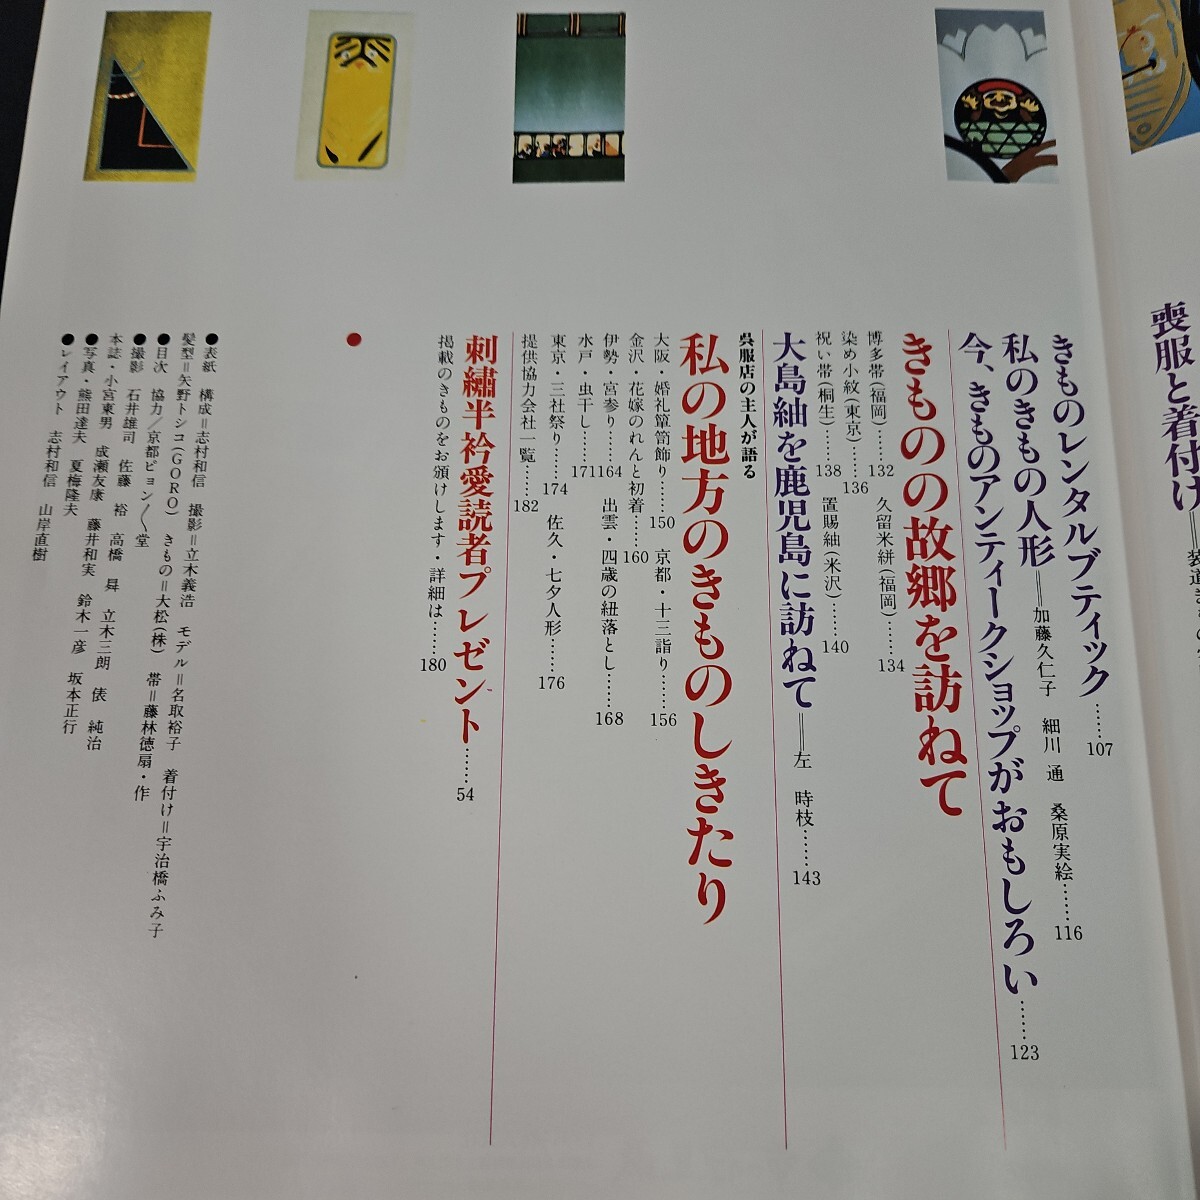 喪服と着付け
きものレンタルブティック……107
私のきもの人形＝加藤久仁子　細川　通　桑原実絵……116
今、きものアンティークショップがおもしろい……123
きものの故郷を訪ねて
博多帯（福岡）……132　久留米絣（福岡）……134
染め小紋（東京）……136
祝い帯（桐生）……138　置賜紬（米沢）……140
大島紬を鹿児島に訪ねて＝左　時枝……143
呉服店の主人が語る
私の地方のきもののしきたり
大阪・婚礼簞笥飾り……150　京都・十三詣り……156
金沢・花嫁のれんと初着……160
伊勢・宮参り……164　出雲・四歳の紐落とし……168
水戸・虫干し……171
東京・三社祭り……174　佐久・七夕人形……176
提供協力会社一覧……182
刺繡半衿愛読者プレゼント……54
掲載のきものをお頒けします・詳細は……180
●表紙　構成＝志村和信　撮影＝立木義浩　モデル＝名取裕子　着付け＝宇治橋ふみ子
髪型＝矢野トシコ（GORO）　きもの＝大松（株）　帯＝藤林徳扇・作
●目次　協力／京都ピョン〱堂
●撮影　石井雄司　佐藤　裕　高橋　曻　立木三朗　俵　純治
本誌・小宮東男　成瀬友康　藤井和実　鈴木一彦　坂本正行
●写真・熊田達夫　夏梅隆夫
●レイアウト　志村和信　山岸直樹